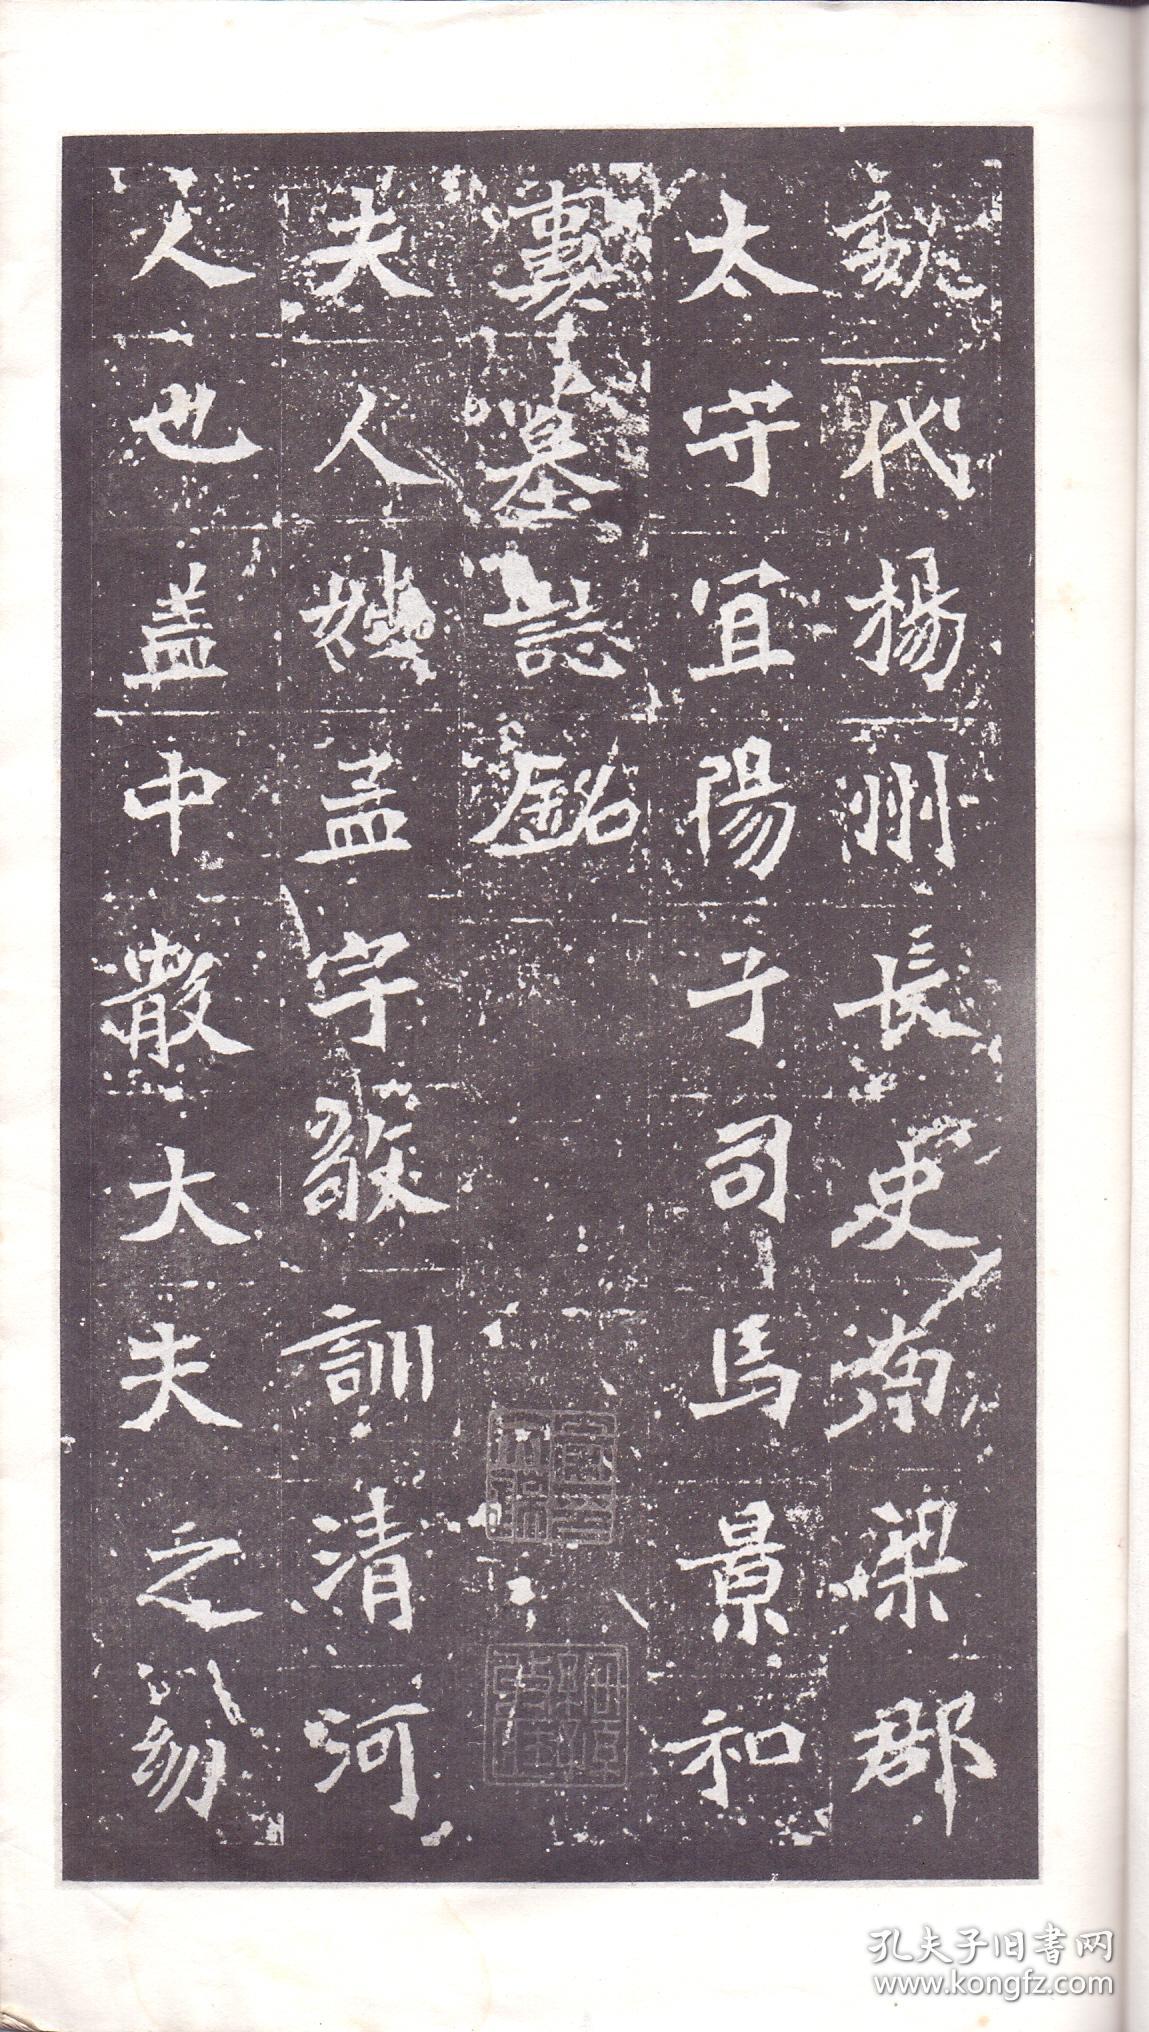 魏代揚州長史南梁郡
太守宜陽子司馬景和
妻墓誌銘
夫人姓孟字敬訓清河
人也盖中散大夫之幼
孔夫子旧书网
www.kongfz.com